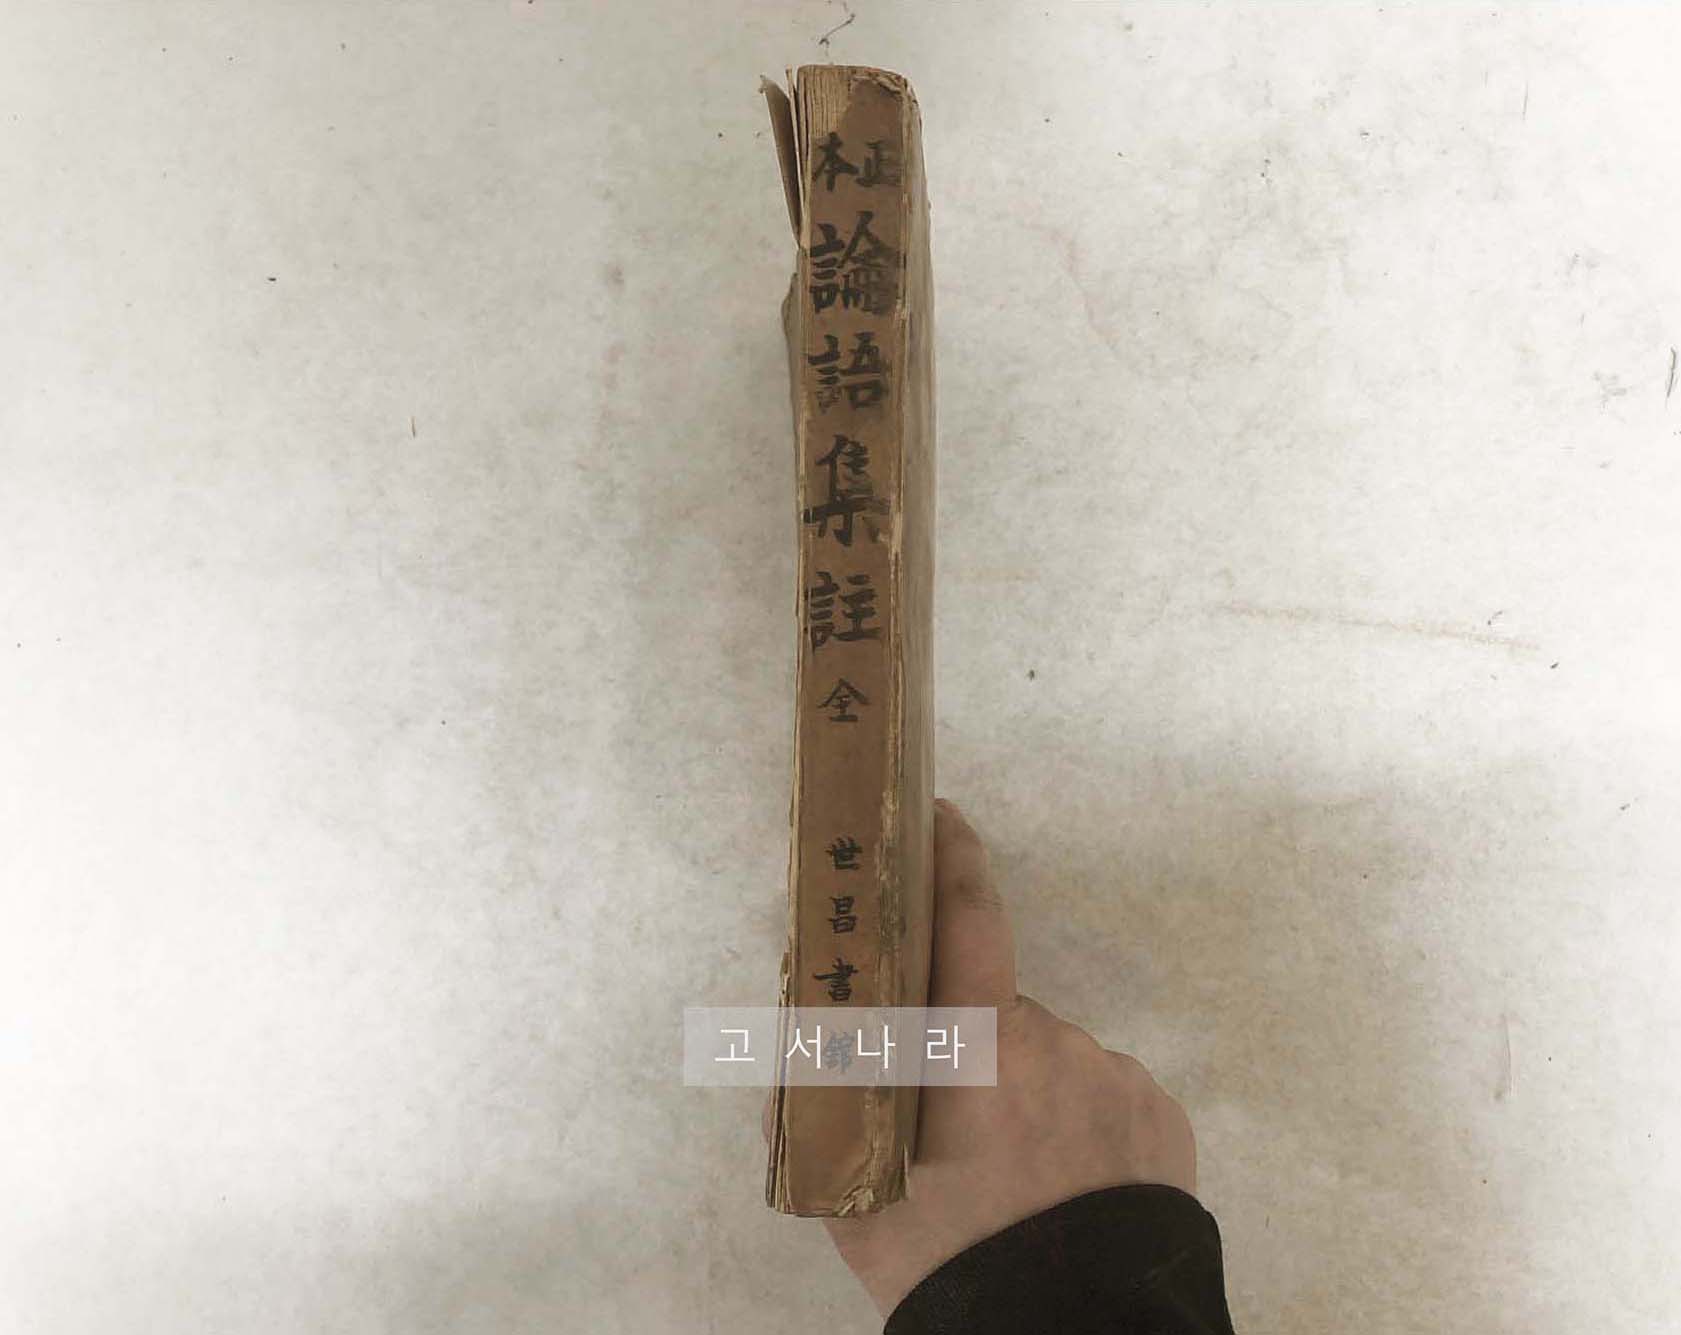 正本
論語集註 全
世昌書館
고서나라